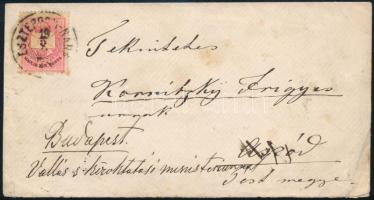 ESZTERGOM
Tekintetes
Kornitzky Frigyes
urnak
Budapest.
Vallás s közoktatási ministerium
Pest megye.